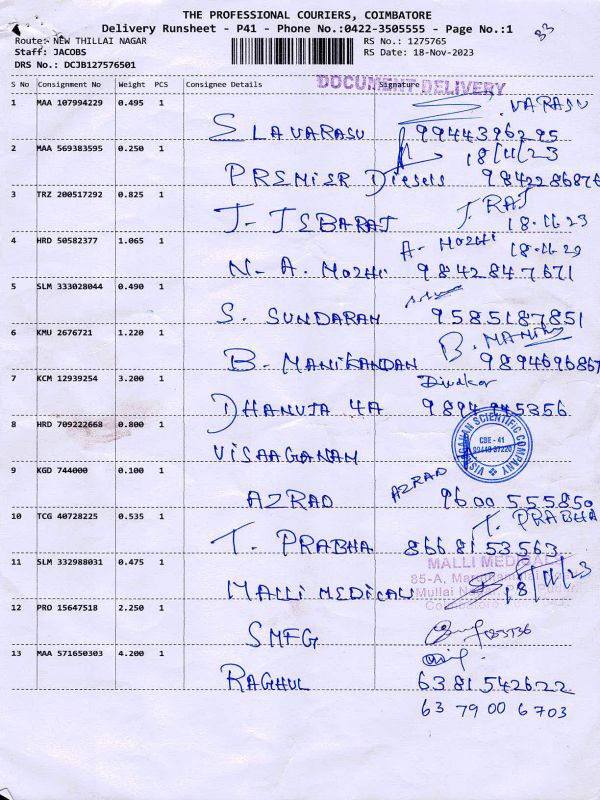 THE PROFESSIONAL COURIERS, COIMBATORE
Delivery Runsheet - P41 - Phone No.:0422-3505555 - Page No.:1
Route: NEW THILLAI NAGAR
RS No.: 1275765
Staff: JACOBS
RS Date: 18-Nov-2023
DRS No.: DCJB127576501
S No Consignment No Weight PCS Consignee Details Signature
DOCUMENT DELIVERY
1 MAA 107994229 0.495 1
VARASU
S LAVARASU 9944396295
2 MAA 569383595 0.250 1
18/11/23
PREMIER Diesels 9842286876
3 TRZ 200517292 0.825 1
J. RAJ
J. JEBARAJ 18.11.23
4 HRD 50582377 1.065 1
A. Mozhi 18.11.23
N. A. Mozhi 9842847671
5 SLM 333028044 0.490 1
S. SUNDARAM 9585187851
6 KMU 2676721 1.220 1
B. MANIKANDAN 989469686
7 KCM 12939254 3.200 1
Diwakar
DHANUJA 4A 9894 945356
8 HRD 709222668 0.800 1
VISAAGANAM
VISAAGANAM SCIENTIFIC COMPANY
CBE - 41
9 KGD 744000 0.100 1
AZRAD
AZRAD 9600 555850
10 TCG 40728225 0.535 1
T. PRABHA
T. PRABHA 8668153563
11 SLM 332988031 0.475 1
MALLI MEDICAL
85-A,
18/11/23
MALLI MEDICAL
12 PRO 15647518 2.250 1
SMFG
13 MAA 571650303 4.200 1
RAGHUL 6381542622
63 79 00 6703